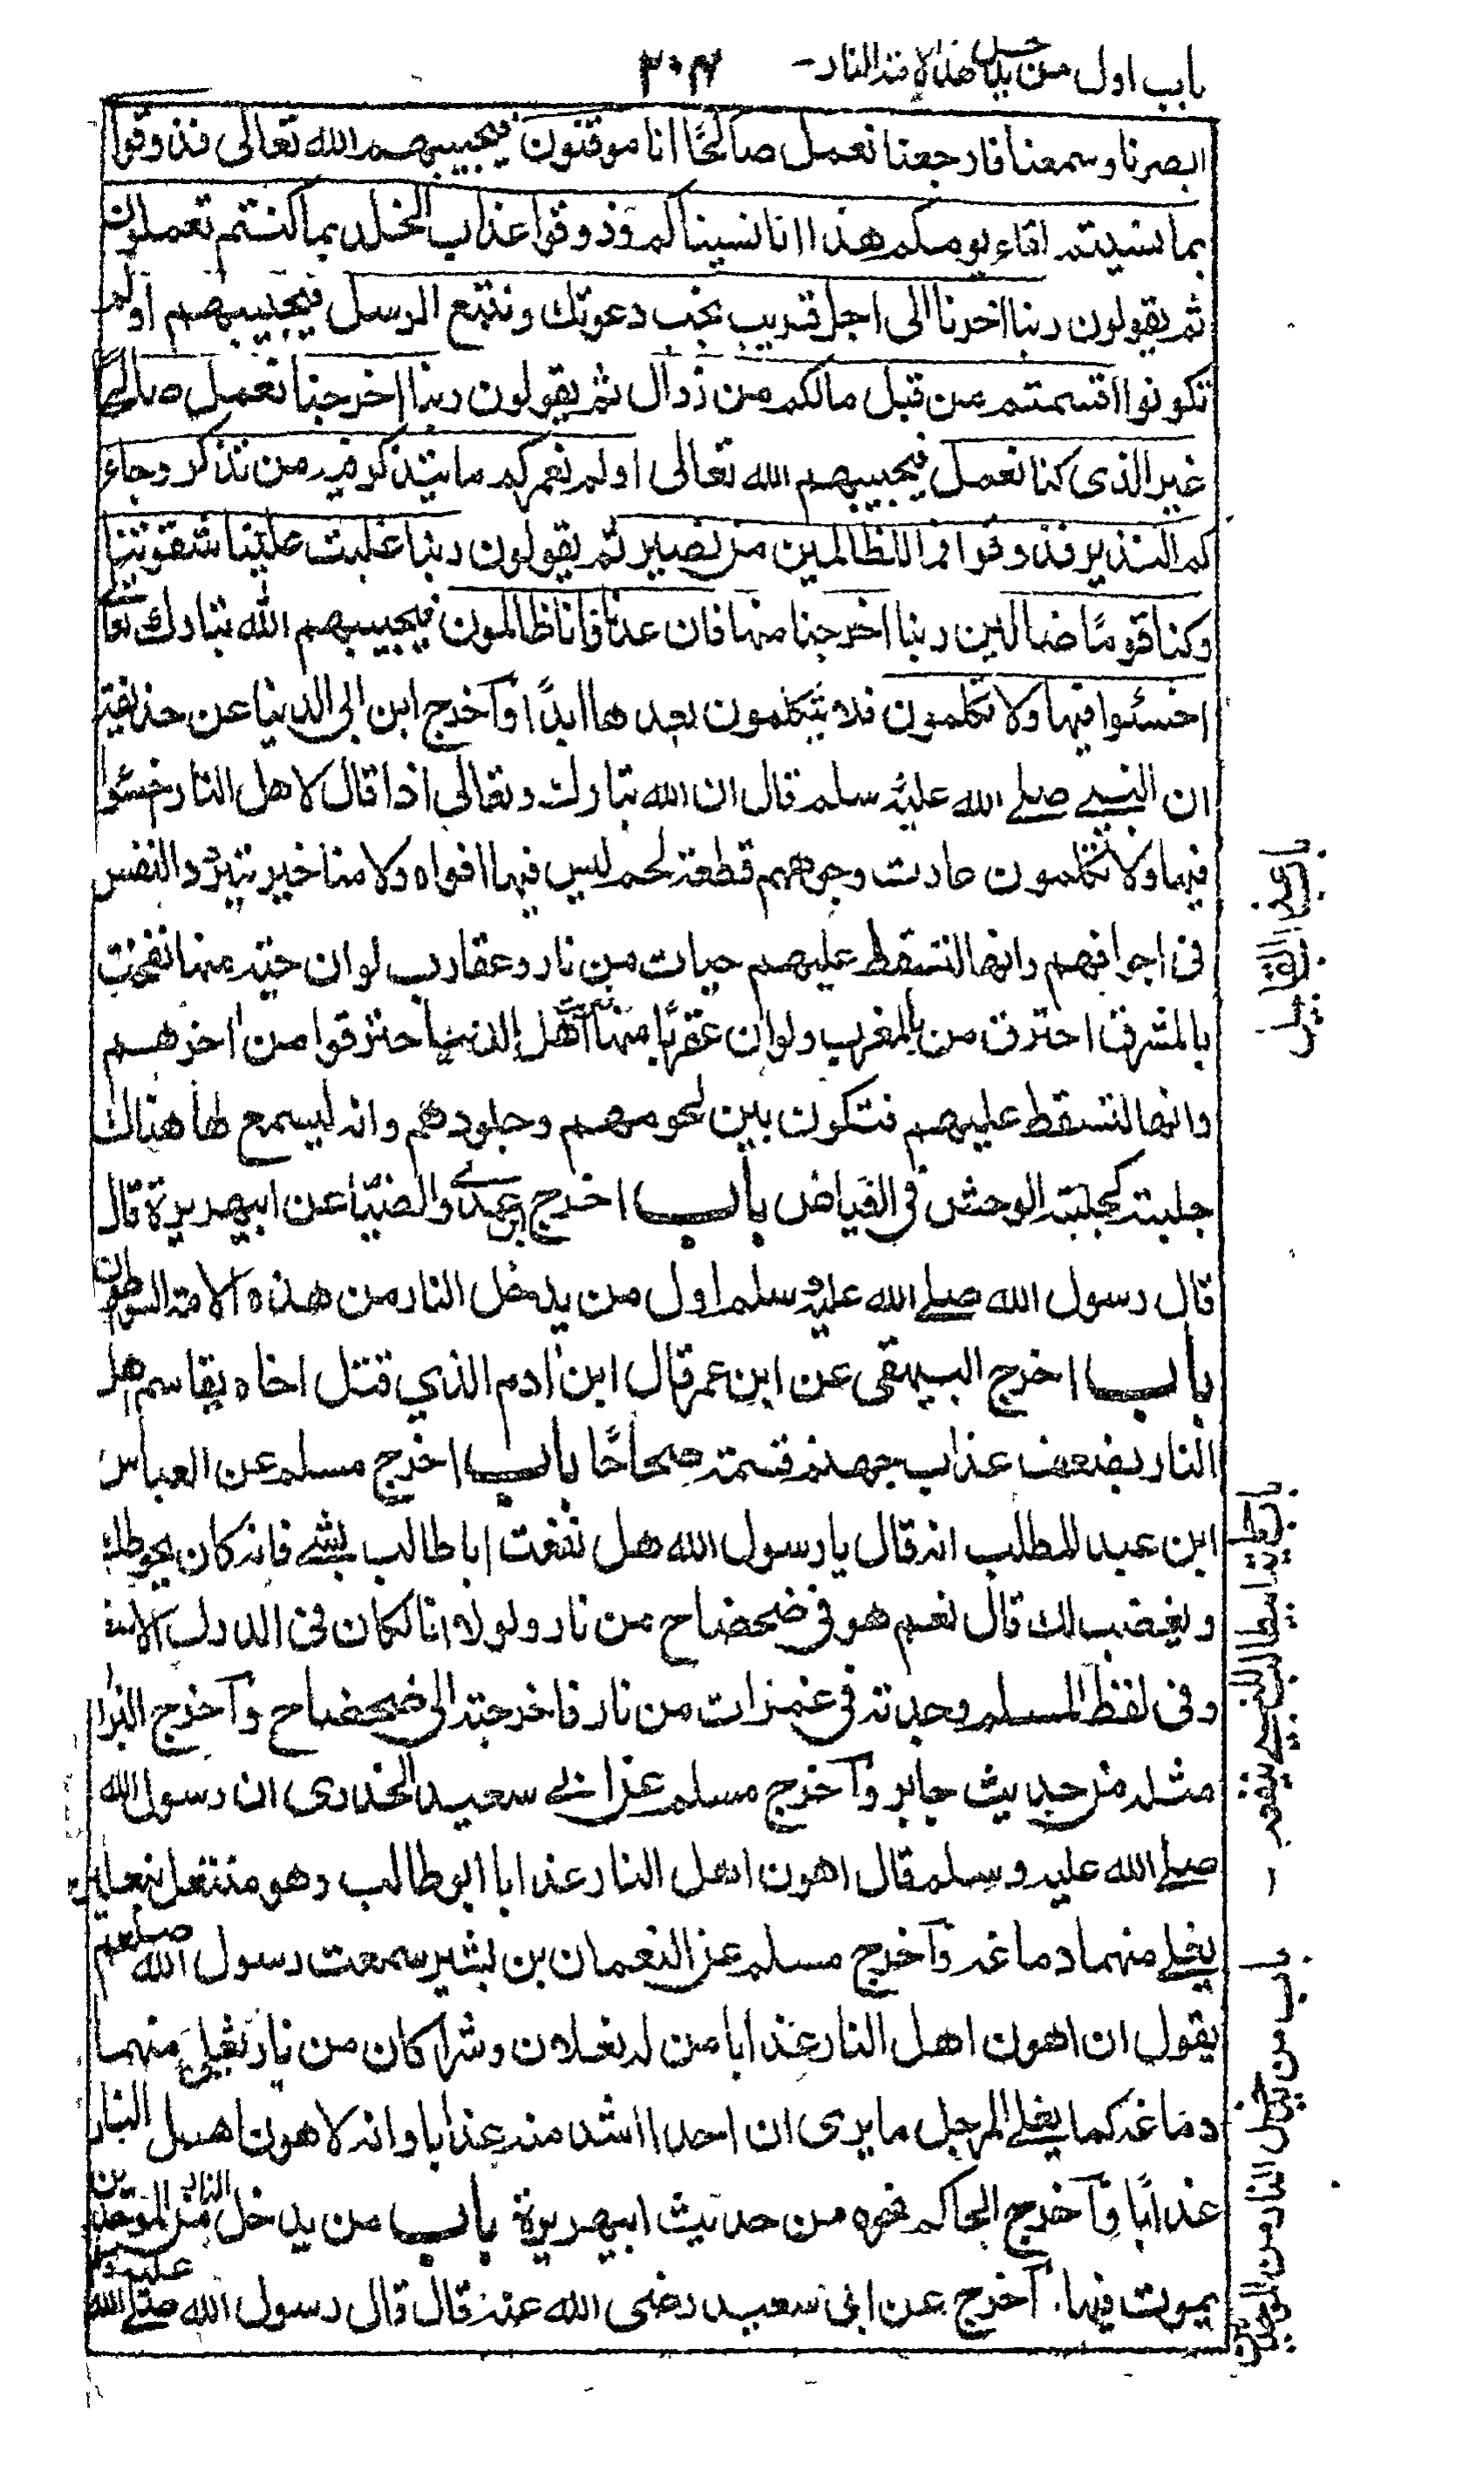 باب اول من يدخل هذه الامة النار - ٢٠٤
ابصرنا وسمعنا فارجعنا نعمل صالحًا انا موقنون فيجيبهم الله تعالى فذوقوا
بما نسيتم لقاء يومكم هذا انا نسيناكم وذوقوا عذاب الخلد بما كنتم تعملون
ثم يقولون ربنا اخرنا الى اجل قريب نجب دعوتك ونتبع الرسل فيجيبهم اولم
تكونوا اقسمتم من قبل مالكم من زوال ثم يقولون ربنا اخرجنا نعمل صالحًا
غير الذى كنا نعمل فيجيبهم الله تعالى اولم نعمركم ما يتذكر فيه من تذكر وجاء
كم النذير فذوقوا فما للظالمين من نصير ثم يقولون ربنا غلبت علينا شقوتنا
وكنا قومًا ضالين ربنا اخرجنا منها فان عدنا فانا ظالمون فيجيبهم الله تبارك تعالى
اخسئوا فيها ولا تكلمون فلا يتكلمون بعدها ابدًا وآخرج ابن ابى الدنيا عن حذيفة
ان النبى صلے الله عليه سلم قال ان الله تبارك وتعالى اذا قال لاهل النار خسئوا
فيها ولا تكلمون عادت وجوههم قطعة لحم ليس فيها افواه ولا مناخير تتردد النفس
فى اجوافهم وانها لتسقط عليهم حيات من نار وعقارب لو ان حية منها نفخت
بالمشرق احترق من بالمغرب ولو ان عقربًا منها اهل الدنيا احترقوا من اخرهم
وانها لتسقط عليهم فتكون بين لحومهم وجلودهم وانه ليسمع لها هناك
جلبة كجلبة الوحش فى الفياض باب اخرج ابن عدى والضيا عن ابيهريرة قال
قال رسول الله صلے الله عليه وسلم اول من يدخل النار من هذه الامة السواطون
باب اخرج البيهقى عن ابن عمر قال ابن ادم الذي قتل اخاه يقاسم اهل
النار بضعف عذاب جهنم قسمة صحاحًا باب اخرج مسلم عن العباس
ابن عبد المطلب انه قال يا رسول الله هل نفعت ابا طالب بشے فانه كان يحوطك
ويغضب لك قال نعم هو فى ضحضاح من نار ولولا انا لكان فى الدرك الاسفل
وفى لفظ المسلم وجدته فى غمزات من نار فاخرجته الى ضحضاح وآخرج البزار
مثله من حديث جابر وآخرج مسلم عن ابے سعيد الخدرى ان رسول الله
صلے الله عليه وسلم قال اهون اهل النار عذابا ابو طالب وهو منتعل بنعلين
يغلے منهما دماغه وآخرج مسلم عن النعمان بن بشير سمعت رسول الله صلعم
يقول ان اهون اهل النار عذابا من له نعلان وشراكان من نار تغلى منهما
دماغه كما يغلے المرجل ما يرى ان احدا اشد منه عذابا وانه لاهون اهل النار
عذابًا وآخرج الحاكم نحوه من حديث ابيهريرة باب من يدخل النار من الموحدين
يموت فيها. آخرج عن ابى سعيد رضى الله عنه قال قال رسول الله صلے الله عليه و
باب عذاب القاتل
باب من يدخل النار من الموحدين